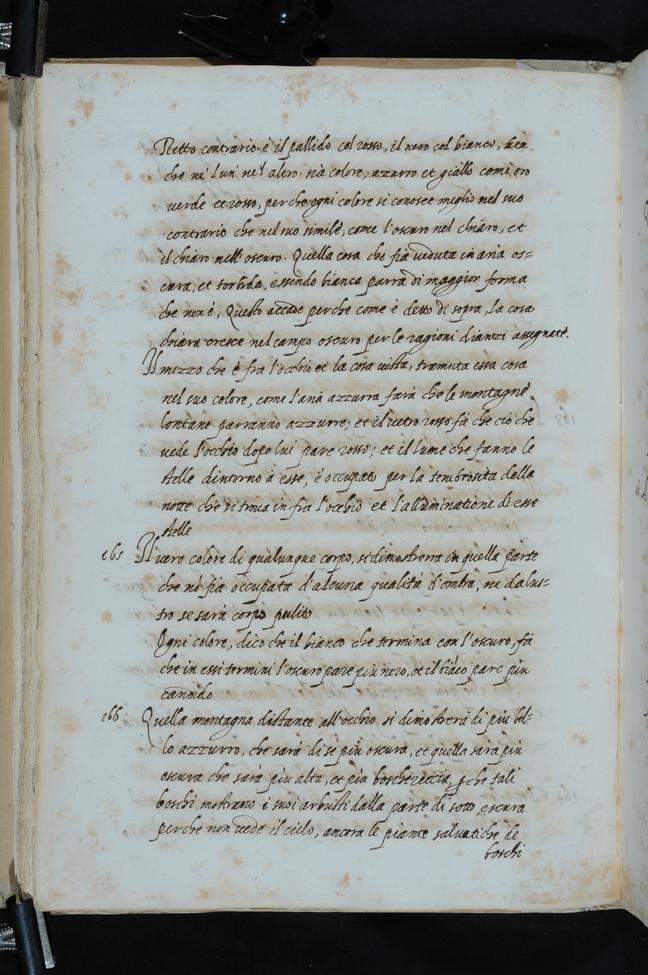 Retto contrario è il pallido col rosso, il nero col bianco, ben
che ne' l'un ne' l'altro sia colore, azurro et giallo come oro
verde et rosso, perche ogni colore si conosce meglio nel suo
contrario che nel suo simile, come l'oscuro nel chiaro, et
il chiaro nell'oscuro. Quella cosa che fia veduta in aria os=
cura, et torbida, essendo bianca parra di maggior forma
che non è, Questo accade perche come è detto di sopra, la cosa
chiara cresce nel campo oscuro per le ragioni dianzi assegnate.
Il mezzo che è fra l'occhio et la cosa vista, tramuta essa cosa
nel suo colore, come l'aria azurra farà che le montagne
lontane parranno azzurre; et il vetro rosso fà che ciò che
vede l'occhio dopo lui pare rosso; et il lume che fanno le
stelle dintorno à esse, è occupato per la tenebrosita della
notte che si troua in fra l'occhio et l'alluminatione di esse
stelle
165 Il vero colore di qualunque corpo, si dimostrera in quella parte
che nō fia occupata d'alcuna qualità d'ombra, ne da lus=
tro se sarà corpo pulito
Ogni colore, dico che il bianco che termina con l'oscuro, fà
che in essi termini l'oscuro pare piu nero, et il biāco pare piu
candido
166 Quella montagna distante all'occhio si dimostrerà di piu bel=
lo azzurro, che sarà di sè piu oscura, et quella sarà piu
oscura che sarà piu alta, et piu boschereccia, pche tali
boschi mostrano i suoi arbusti dalla parte di sotto, oscura
perche non vede il cielo, ancora le piante saluatiche de
boschi